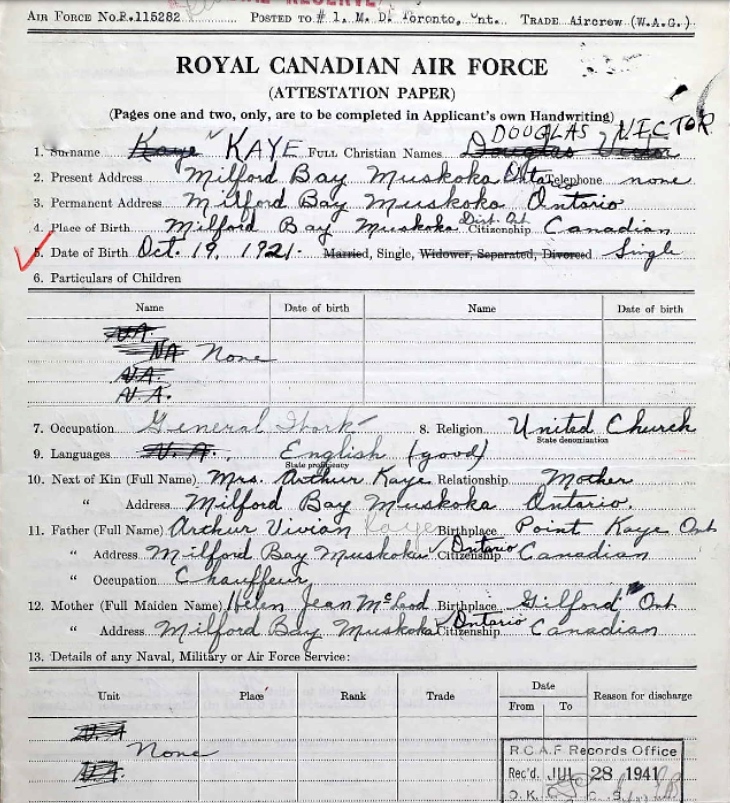 AIR FORCE No. R.115282 POSTED TO # 1. M. D. Toronto, Ont. TRADE Aircrew (W.A.G.)
ROYAL CANADIAN AIR FORCE
(ATTESTATION PAPER)
(Pages one and two, only, are to be completed in Applicant's own Handwriting)
DOUGLAS VICTOR
1. Surname Kaye KAYE FULL Christian Names Douglas Victor
2. Present Address Milford Bay Muskoka Ont. Telephone none
3. Permanent Address Milford Bay Muskoka Ontario
4. Place of Birth Milford Bay Muskoka Dist. Ont. Citizenship Canadian
5. Date of Birth Oct. 19, 1921. Married, Single, Widower, Separated, Divorced Single
6. Particulars of Children
Name Date of birth Name Date of birth
N.A.
NA None
N.A.
N.A.
7. Occupation General Work 8. Religion United Church
State denomination
9. Languages N.A. English (good)
State proficiency
10. Next of Kin (Full Name) Mrs. Arthur Kaye Relationship Mother
" Address Milford Bay Muskoka Ontario.
11. Father (Full Name) Arthur Vivian Kaye Birthplace Point Kaye Ont
" Address Milford Bay Muskoka Ontario Citizenship Canadian
" Occupation Chauffeur
12. Mother (Full Maiden Name) Helen Jean McLeod Birthplace Gilford Ont
" Address Milford Bay Muskoka Ontario Citizenship Canadian
13. Details of any Naval, Military or Air Force Service:
Unit Place Rank Trade Date Reason for discharge
From To
N.A
None
N.A.
R.C.A.F Records Office
Rec'd. JUL 28 1941
O.K.